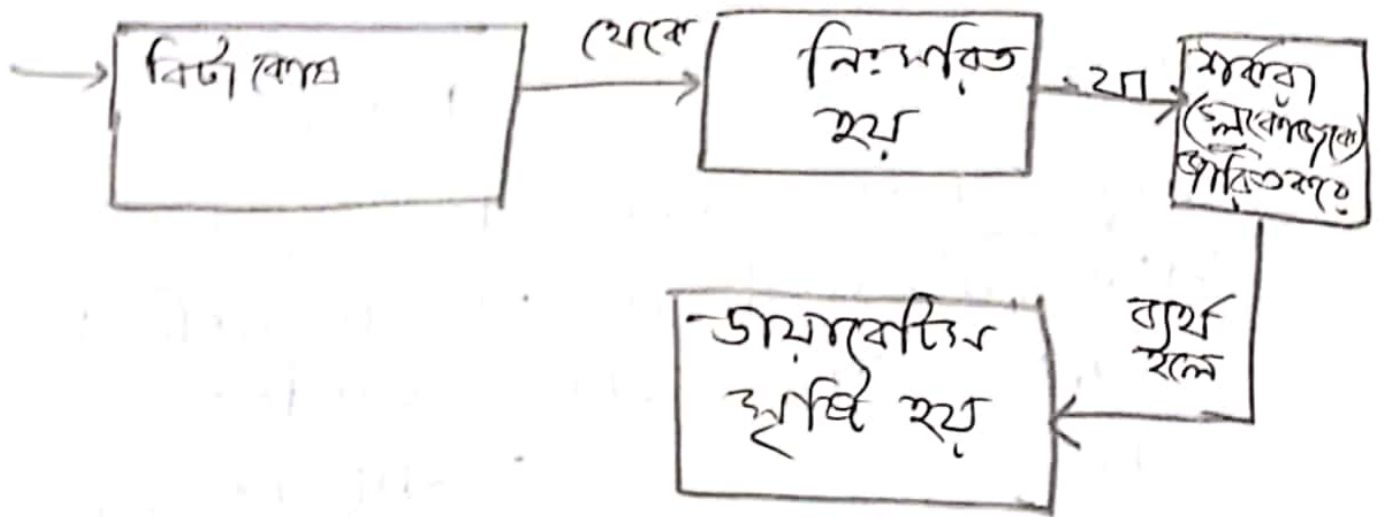 বিটা কোষ
থেকে
নিঃসরিত
হয়
যা
শর্করা
(গ্লুকোজকে)
জারিত করে
ব্যর্থ
হলে
ডায়াবেটিস
সৃষ্টি হয়